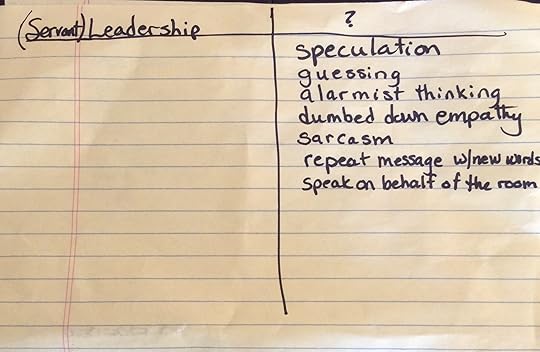 (Servant) Leadership
?
speculation
guessing
alarmist thinking
dumbed down empathy
sarcasm
repeat message w/new words
speak on behalf of the room